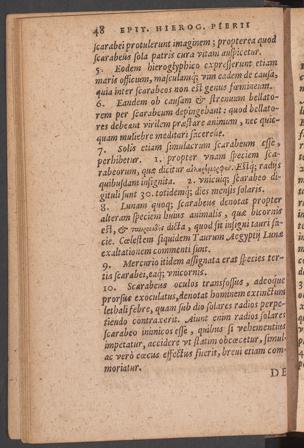 48 EPIT. HIEROG. PIERII
scarabei protulerunt imaginem; propterea quod
scarabeus sola patris cura vitam auspicetur.
5. Eodem hieroglyphico expresserunt etiam
maris officium, masculamq; vim eadem de causa,
quia inter scarabeos non est genus fœmineum.
6. Eandem ob causam & strenuum bellato-
rem per scarabeum depingebant: quod bellato-
res debeant virilem præstare animum, nec quic-
quam muliebre meditari facereúe.
7. Solis etiam simulacrum scarabeum esse,
perhibetur. 1. propter vnam speciem sca-
rabeorum, quæ dicitur Estq; radijs
quibusdam insignita. 2. vnicuiq; scarabeo di-
gituli sunt 30. totidemq; dies mensis solaris.
8. Lunam quoq; scarabeus denotat propter
alteram speciem huius animalis, quæ bicornis
est, & dicta, quod sit insigni tauri fa-
cie. Cœlestem siquidem Taurum Aegyptij Lunæ
exaltationem commenti sunt.
9. Mercurio itidem assignata erat species ter-
tia scarabei, eaq; vnicornis.
10. Scarabeus oculos transfossus, adeoque
prorsus exoculatus, denotat hominem extinctum
lethali febre, quam sub dio solares radios perpe-
tiendo contraxerit. Aiunt enim radios solares
scarabeo inimicos esse, quibus si vehementius
impetatur, accidere vt statim obcæcetur, simul-
ac verò cæcus effectus fuerit, breui etiam com-
moriatur.
DE